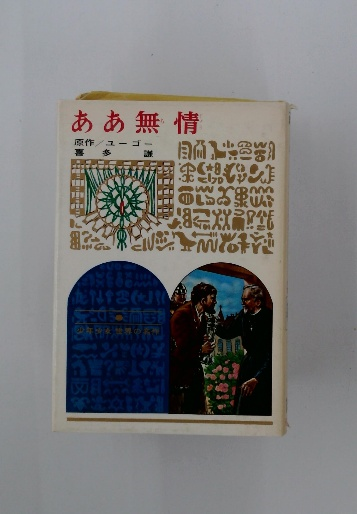 ああ無情
原作／ユーゴー
喜多謙
少年少女世界の名作